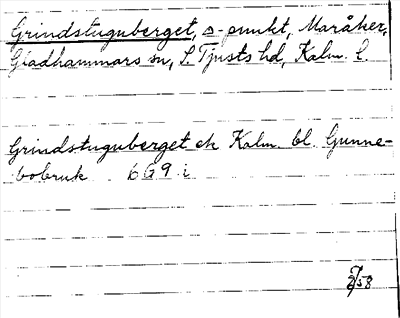 Grindstuguberget, s-punkt, Maråker,
Gladhammars sn, S. Tjusts hd, Kalm. l.
Grindstuguberget ek Kalm. bl. Gunne-
bobruk 6G9 i